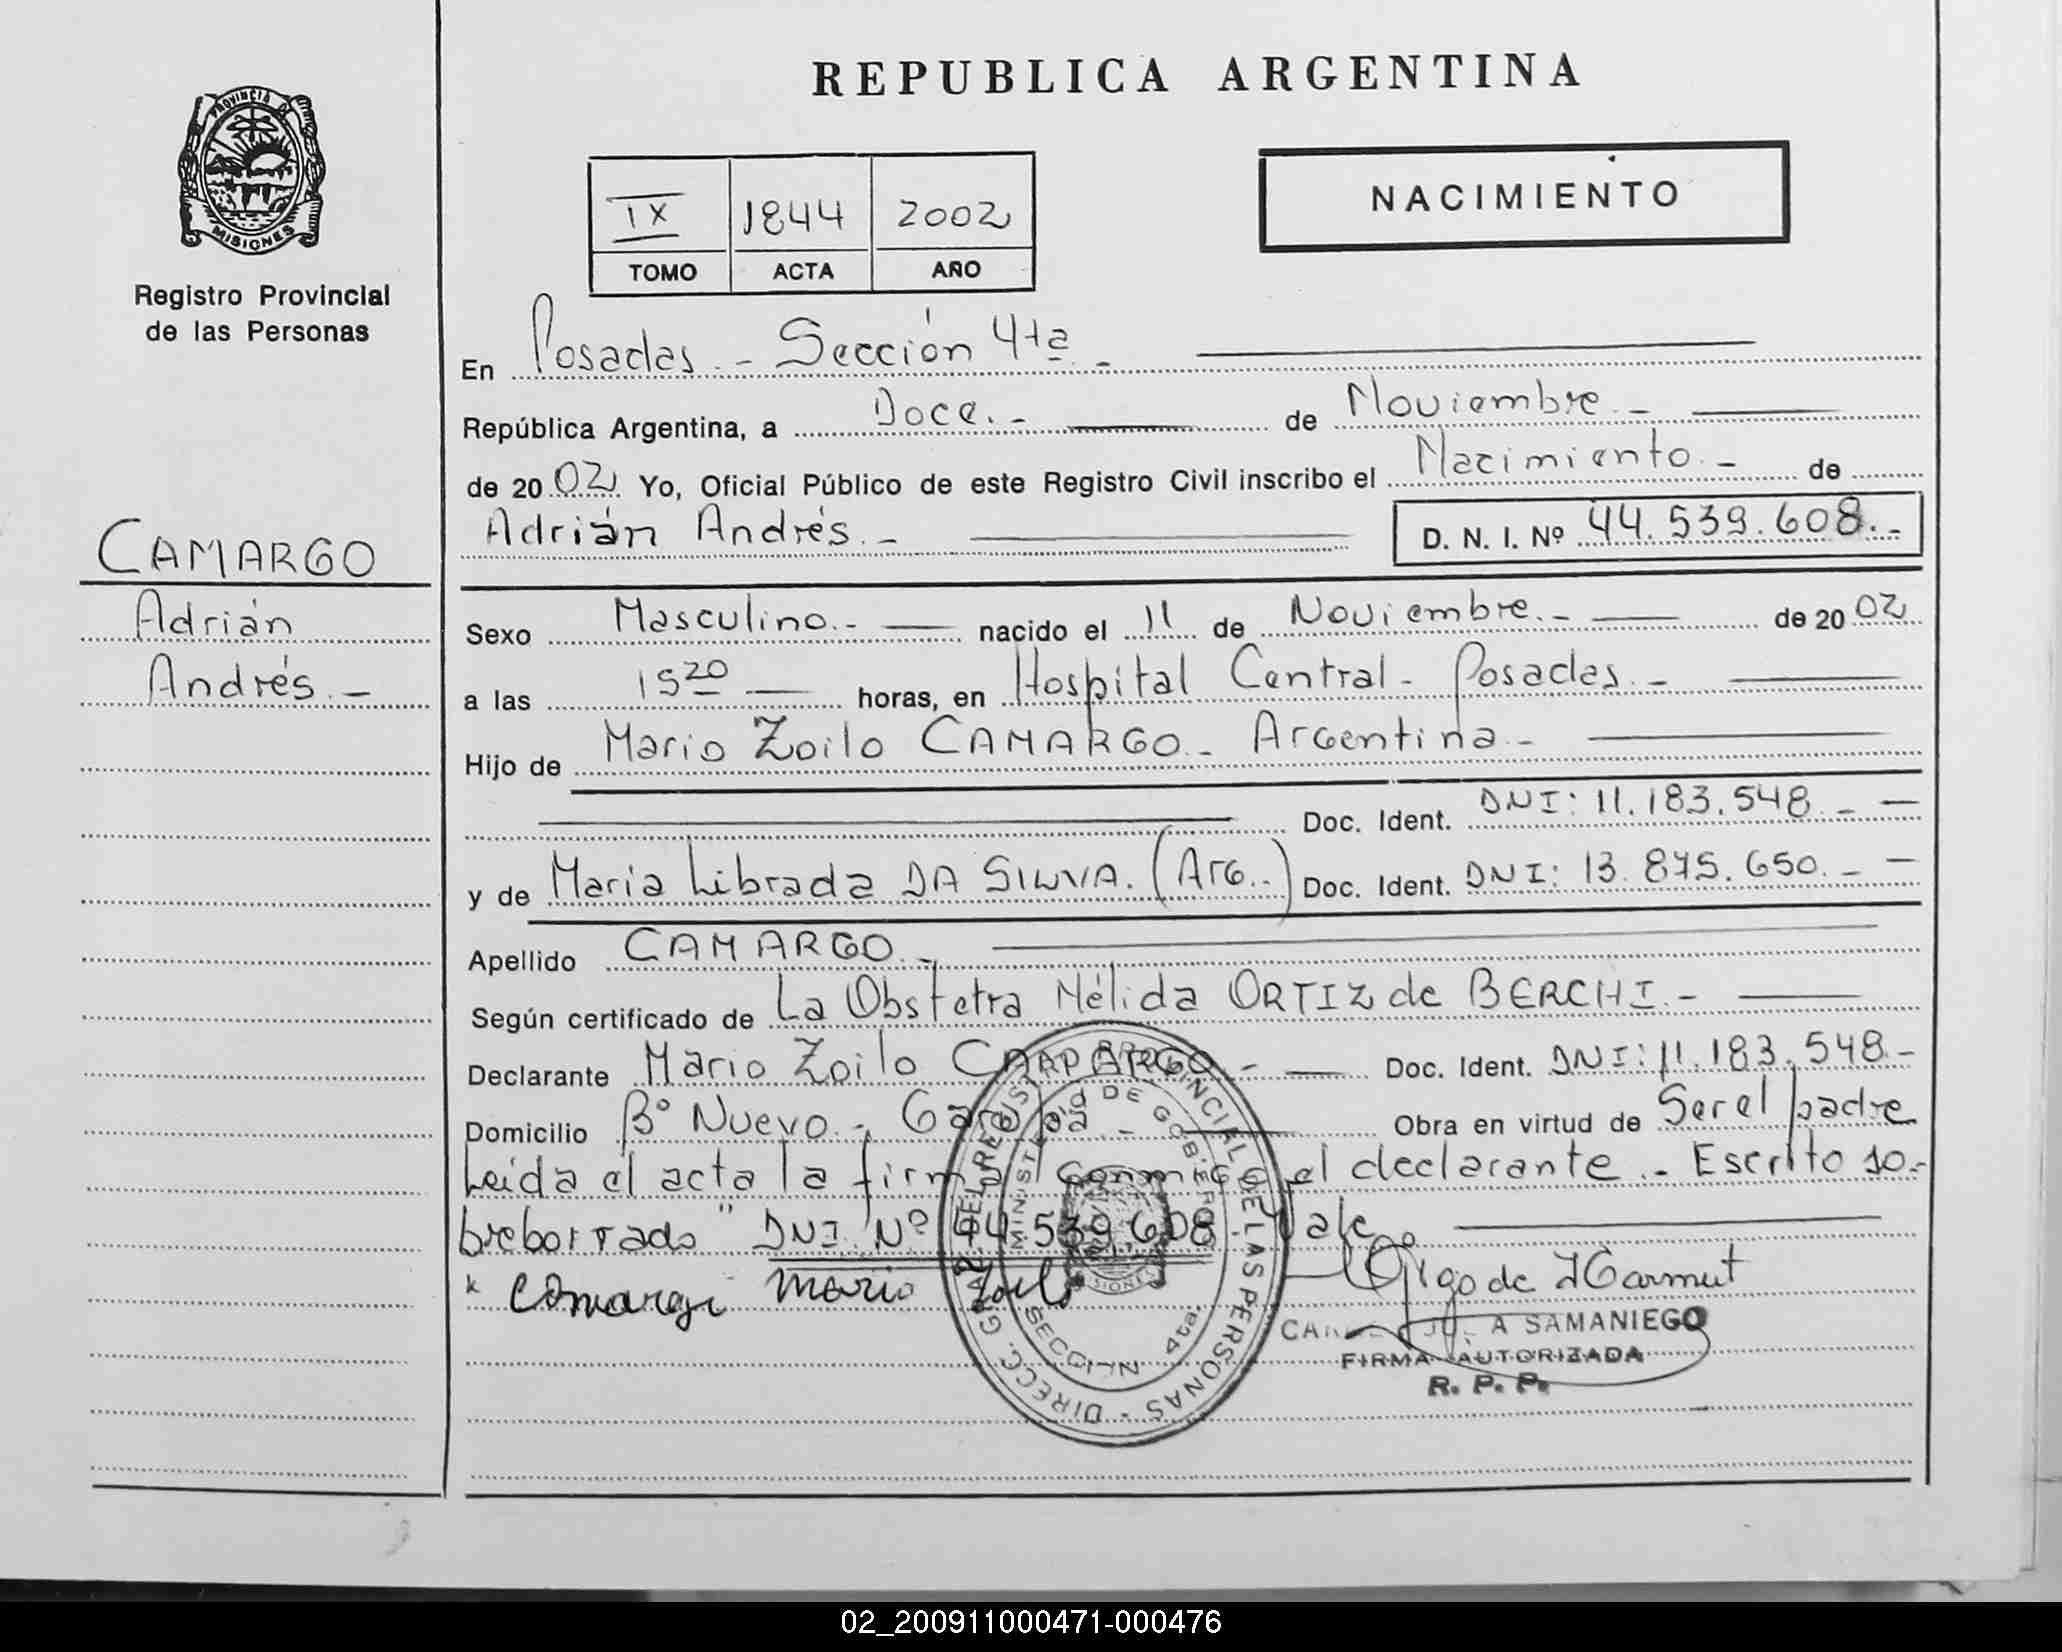 REPUBLICA ARGENTINA
PROVINCIA DE
MISIONES
Registro Provincial
de las Personas
IX 1844 2002
TOMO ACTA AÑO
NACIMIENTO
En Posadas - Sección 4ta -
República Argentina, a Doce.- de Noviembre.-
de 2002 Yo, Oficial Público de este Registro Civil inscribo el Nacimiento.- de
Adrián Andrés.-
D. N. I. Nº 44.539.608.-
CAMARGO
Adrián
Andrés.-
Sexo Masculino.- nacido el 11 de Noviembre.- de 2002
a las 15 20 horas, en Hospital Central - Posadas.-
Hijo de Mario Zoilo CAMARGO - Argentina -
Doc. Ident. DNI: 11.183.548.-
y de Maria Librada DA SILVA. (Arg.-) Doc. Ident. DNI: 13.875.650.-
Apellido CAMARGO.-
Según certificado de La Obstetra Nélida ORTIZ de BERCHI.-
Declarante Mario Zoilo CAMARGO - Doc. Ident. DNI: 11.183.548.-
Domicilio Bº Nuevo - Garupá - Obra en virtud de Ser el padre
Leida el acta la firma conmigo el declarante.- Escrito so-
breborrado "DNI Nº 44.539.608 Vale
x Camargo Mario Zoilo
SAMANIEGO
FIRMA AUTORIZADA
R. P. P.
DIRECC. GRAL. DEL REGISTRO PROVINCIAL DE LAS PERSONAS -
MINISTERIO DE GOBIERNO
SECCION 4ta.
02_200911000471-000476